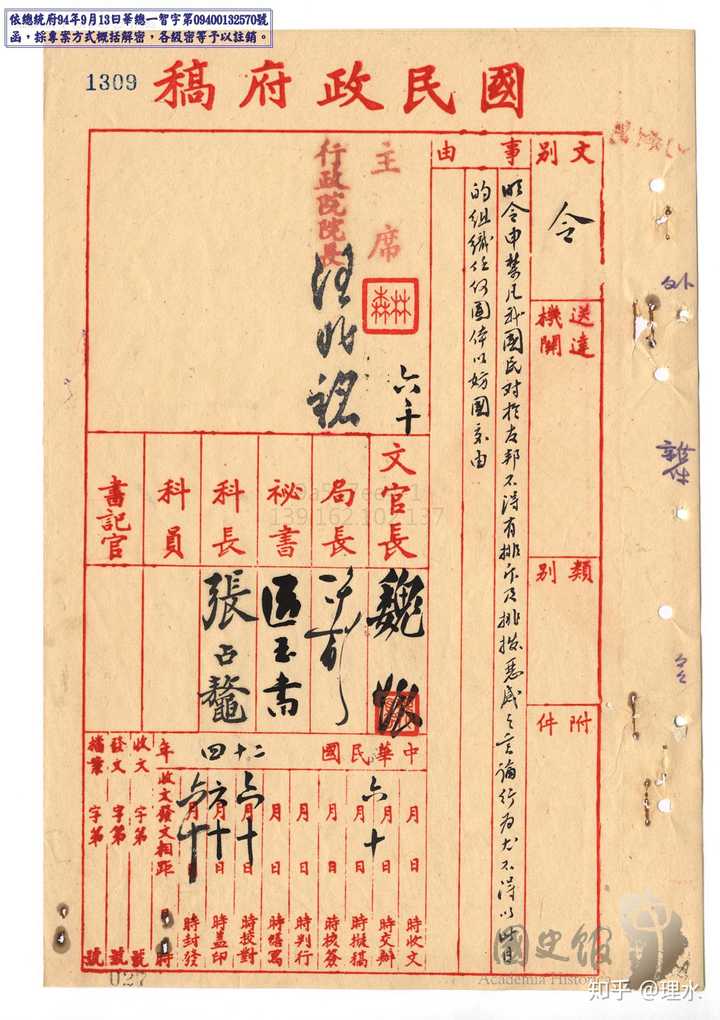 依總統府94年9月13日華總一智字第09400132570號
函，採專案方式概括解密，各級密等予以註銷。
1309
國民政府稿
文別
令
送達機關
類別
附件
事由
明令申禁凡我國民對於友邦不得有排斥及挑撥惡感之言論行為尤不得以此目
的組織任何團体以妨國交由
主席
行政院院長
汪兆銘
六年
文官長
魏懷
局長
祕書
科長
張占鰲
科員
書記官
中華民國二十四年
月日時收文
月日時交辦
六月十日時擬稿
月日時核簽
月日時判行
月日時繕寫
六月十日時校對
六月十日時蓋印
六月十日時封發
收文發文相距日時
收文字第號
發文字第號
檔案字第號
外
雜件
027
國史館
Academia Historica
知乎 @理水